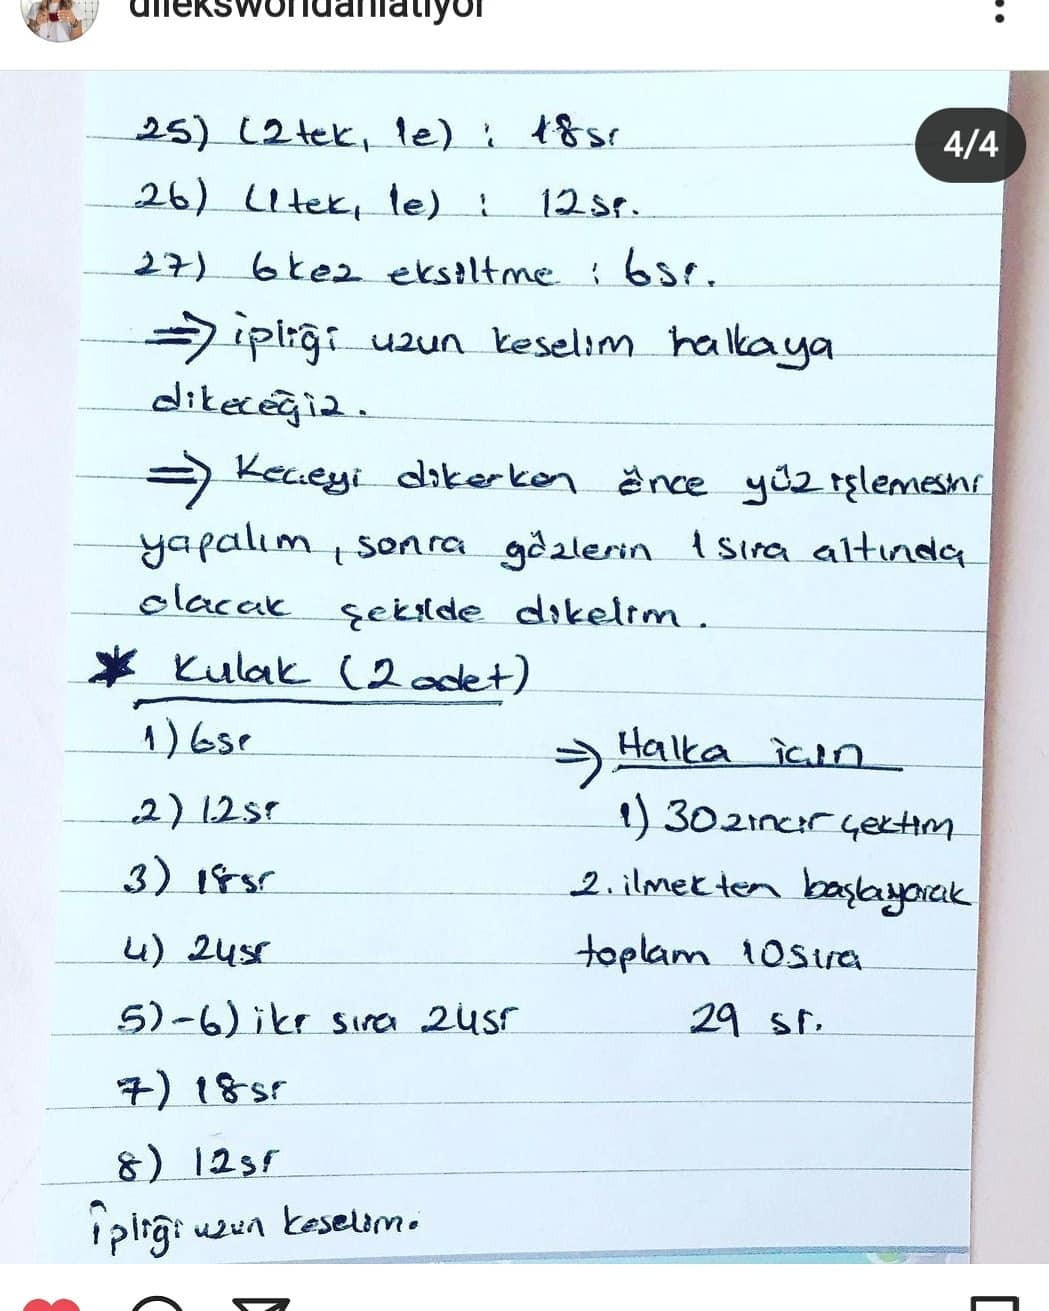 dileksworldanlatiyor
4/4
25) (2tek, 1e) : 18sr
26) (1tek, 1e) : 12sr.
27) 6 kez eksiltme : 6sr.
=> ipliği uzun keselim halkaya
dikeceğiz.
=> Keçeyi dikerken önce yüz işlemesini
yapalım, sonra gözlerin 1 sıra altında
olacak şekilde dikelim.
* Kulak (2 adet)
1) 6sr
2) 12sr
3) 18sr
4) 24sr
5)-6) iki sıra 24sr
7) 18sr
8) 12sr
İpliği uzun keselim.
=> Halka için
1) 30 zincir çektim
2. ilmekten başlayarak
toplam 10 sıra
29 sr.